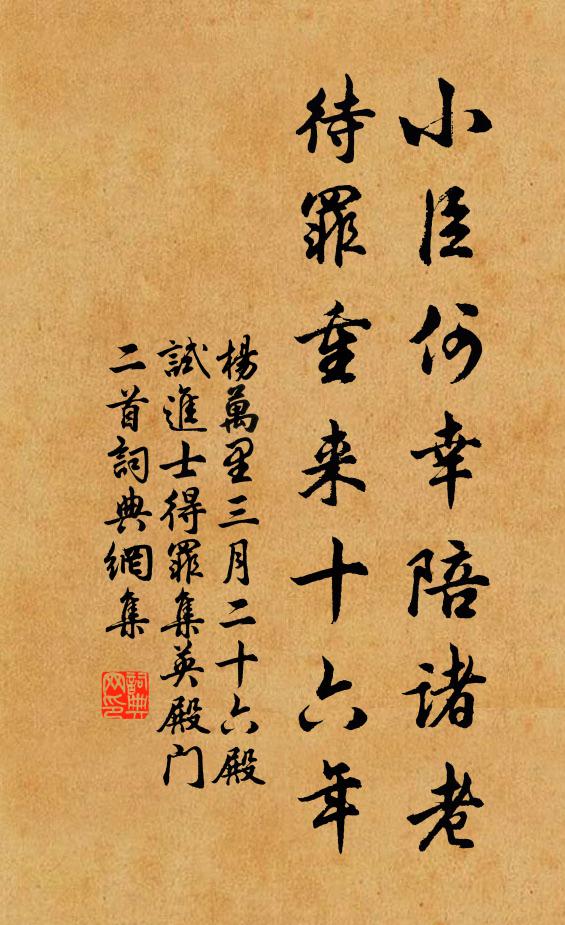 小臣何幸陪諸老
待罪重来十六年
楊萬里三月二十六殿
試進士得罪集英殿门
二首詞典網集
詞典
网印